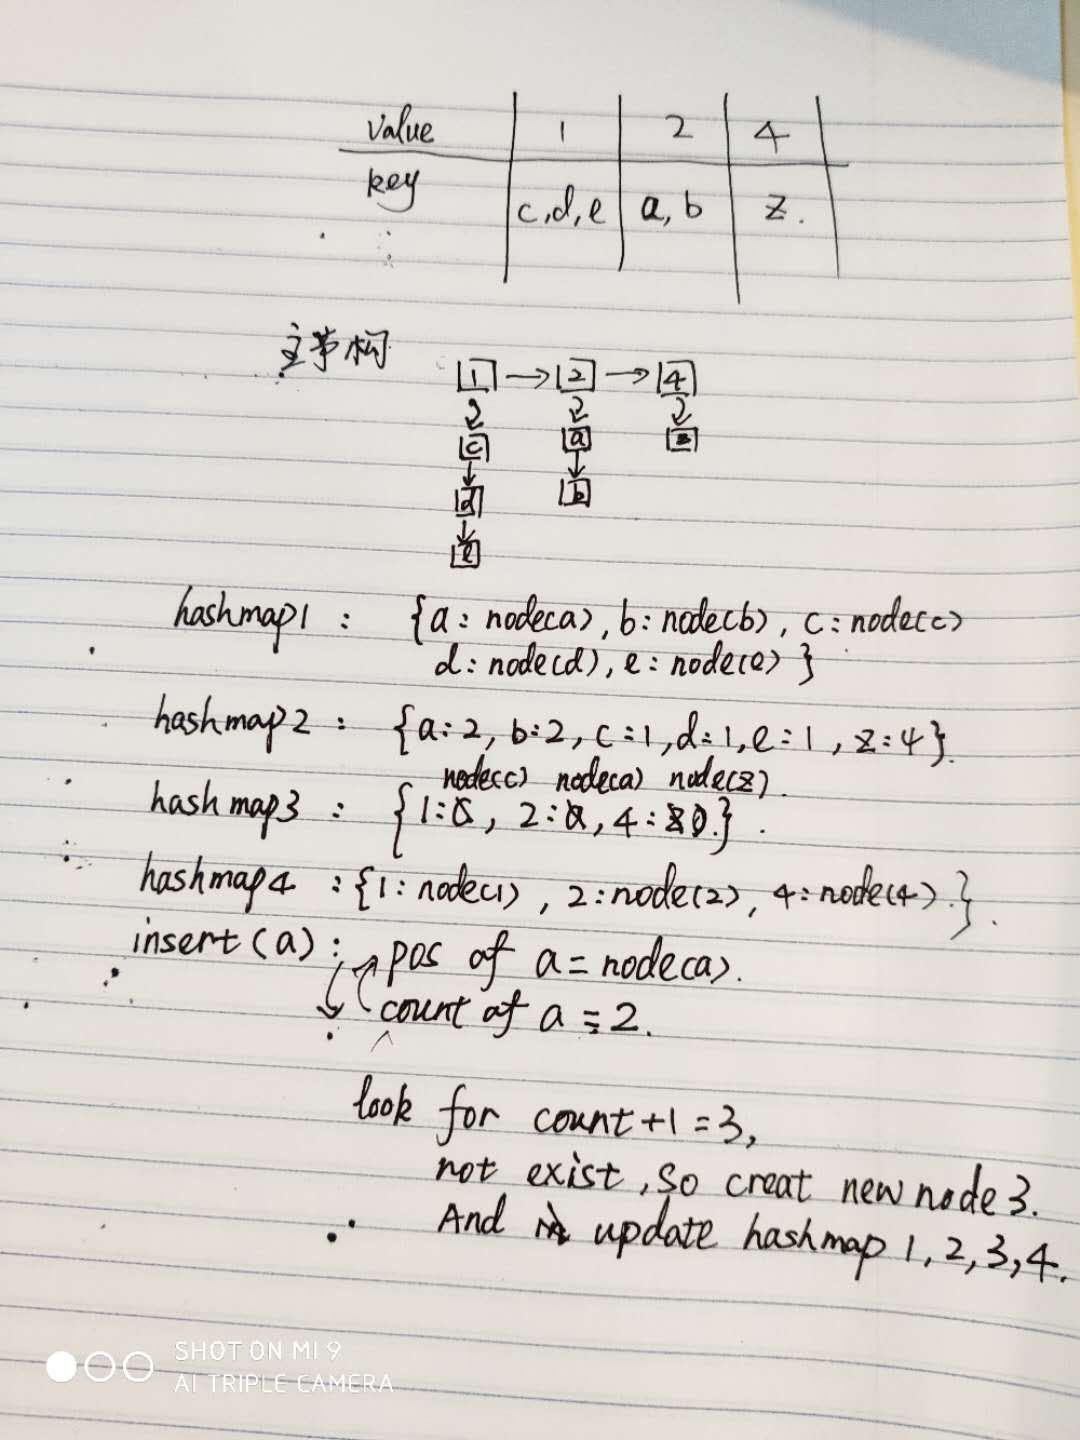 value 1 2 4
key c,d,e a,b z.
主节构
1 → 2 → 4
c a z
d b
e
hashmap1 : {a: node(a), b: node(b), c: node(c)
d: node(d), e: node(e) }
hashmap2 : {a:2, b:2, c:1, d:1, e:1, z:4}.
node(c) node(a) node(z).
hashmap3 : {1: , 2: , 4: }.
hashmap4 : {1: node(1), 2: node(2), 4: node(4).}.
insert(a): pos of a = node(a).
count of a = 2.
look for count+1=3,
not exist, so creat new node 3.
And update hashmap 1,2,3,4.
SHOT ON MI 9
AI TRIPLE CAMERA